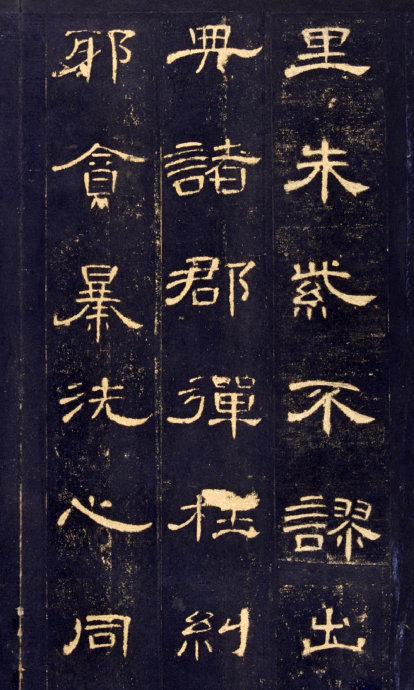 里朱紫不謬出
典諸郡彈枉糾
邪貪暴洗心同